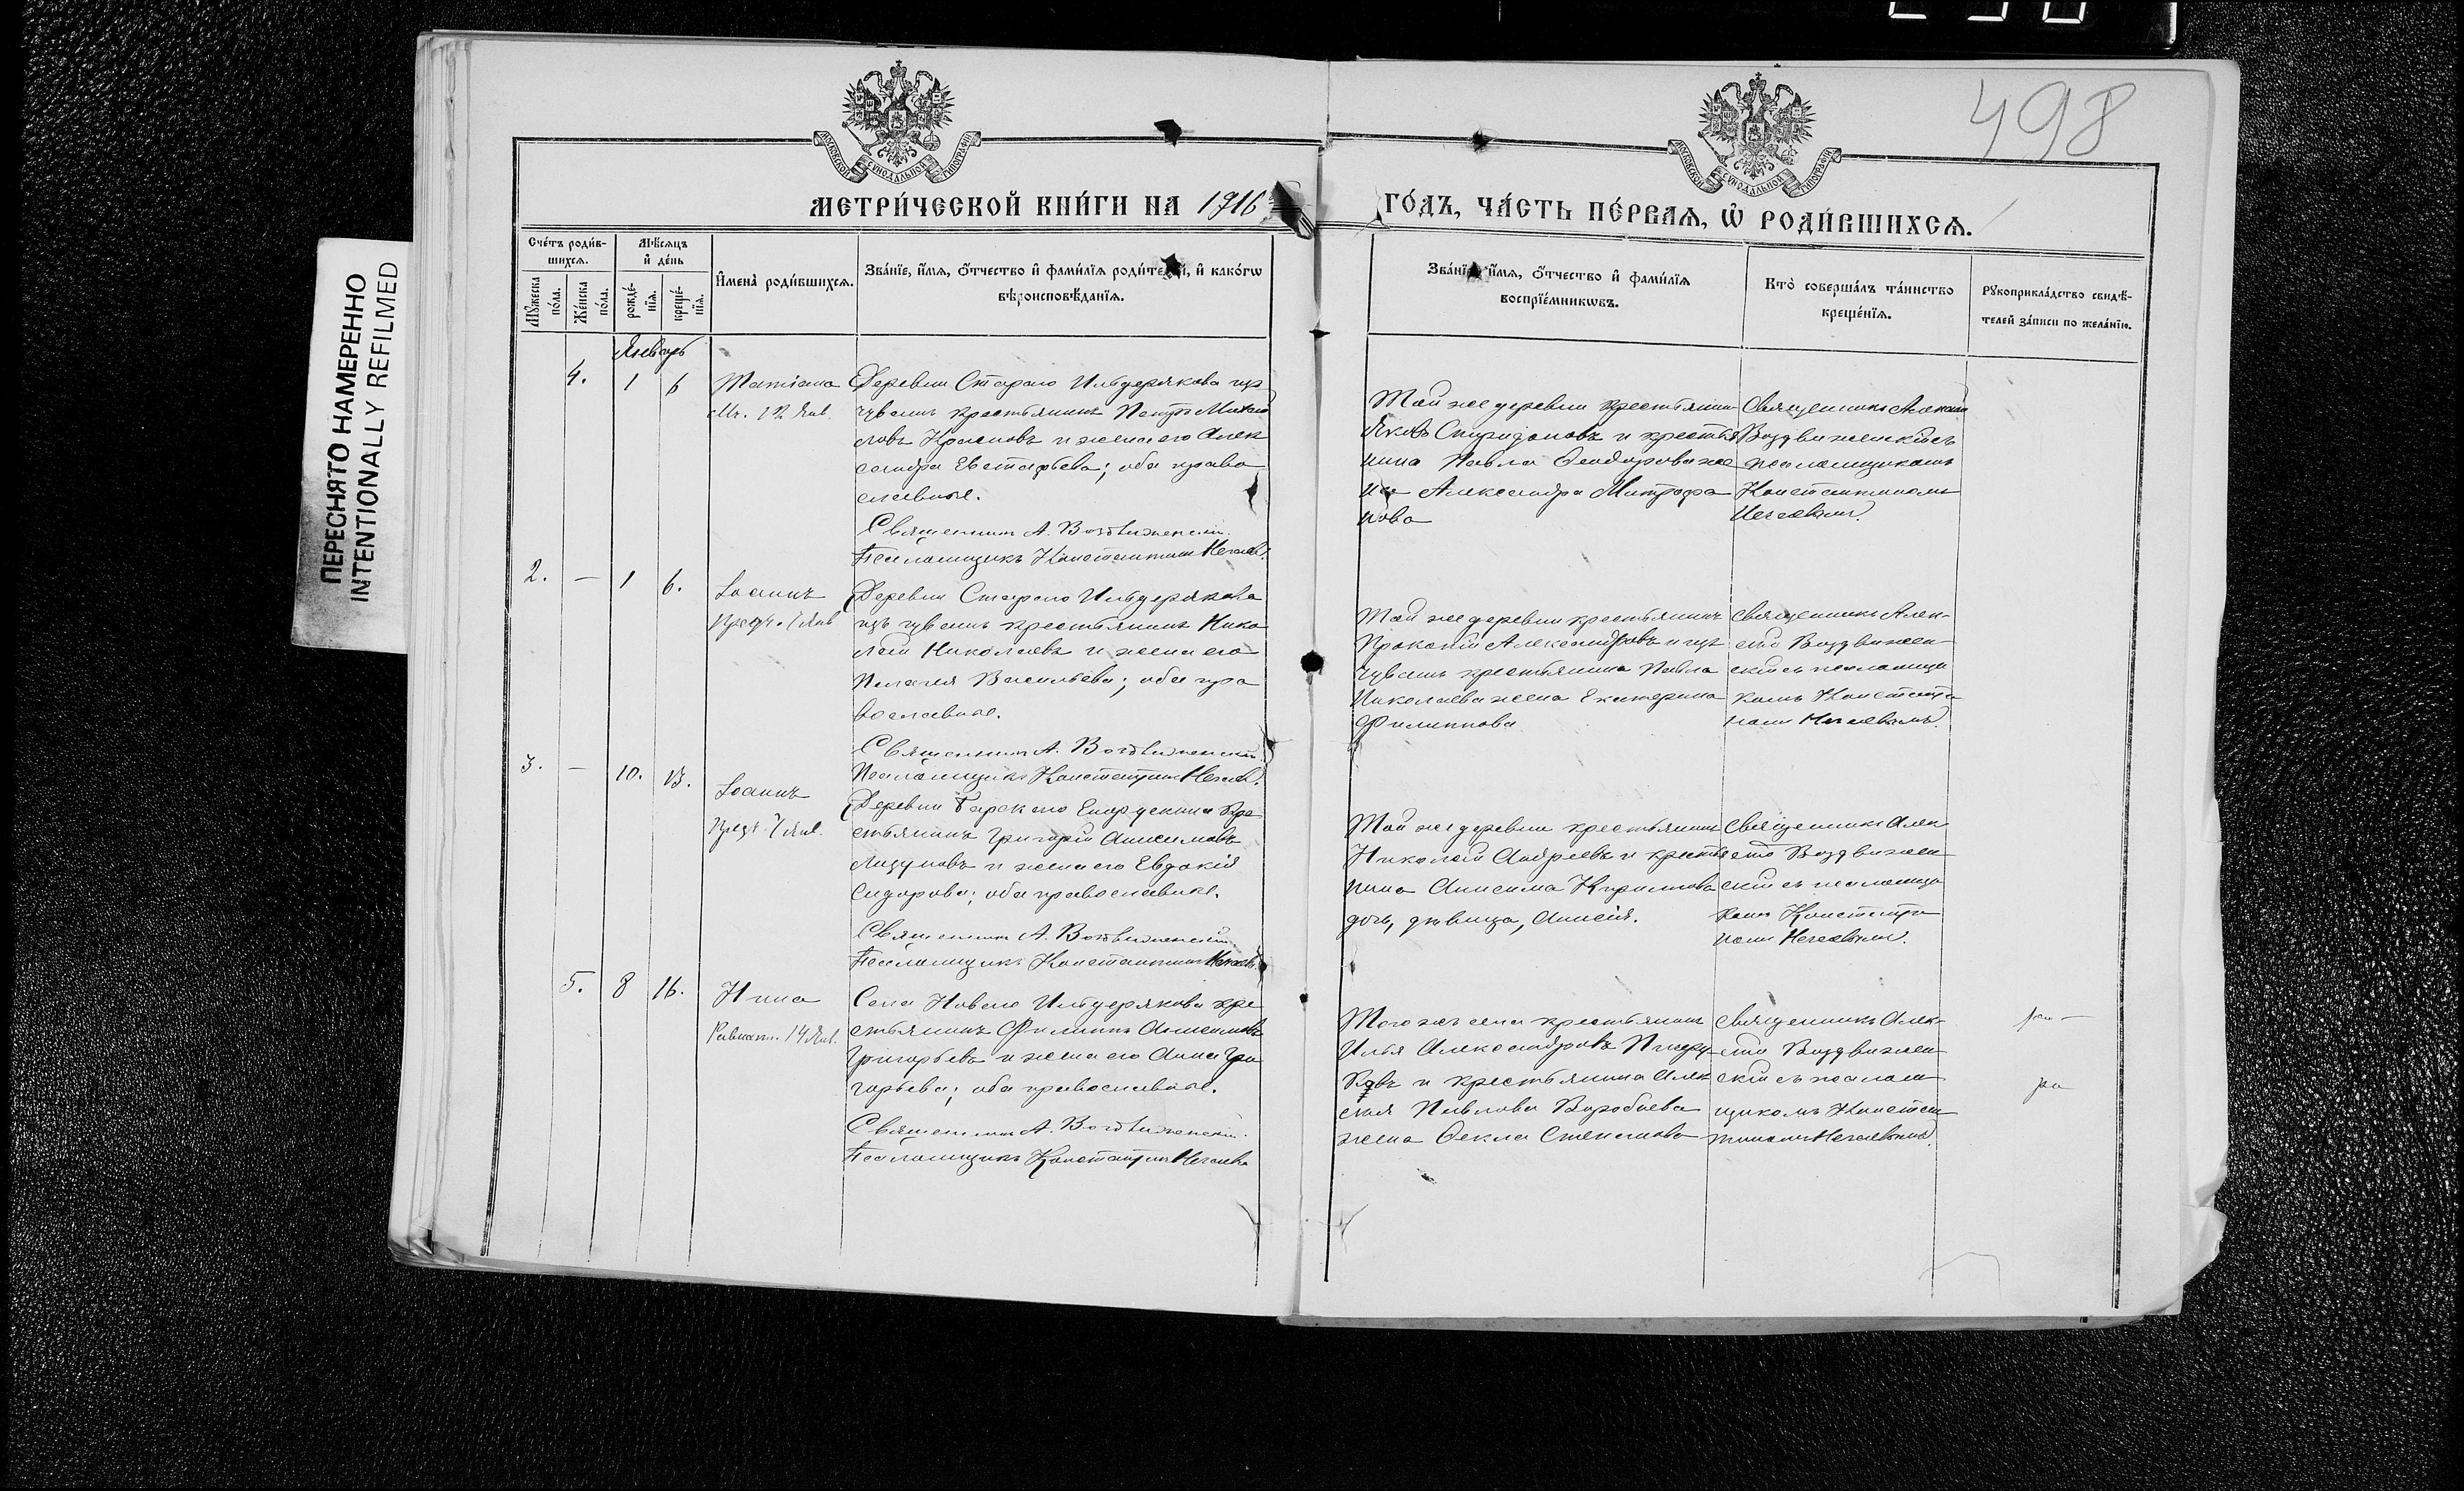 498
ПЕРЕСНЯТО НАМЕРЕННО
INTENTIONALLY REFILMED
МОСКОВСКОЙ СУНОДАЛЬНОЙ ТИПОГРАФІИ
МОСКОВСКОЙ СУНОДАЛЬНОЙ ТИПОГРАФІИ
МЕТРИ́ЧЕСКОЙ КНИ́ГИ НА 1916
ГО́ДЪ, ЧА́СТЬ ПЕ́РВАѦ, Ѡ҆ РОДИ́ВШИХСѦ.
Сче́тъ роди́в-
шихсѧ.
Мꙋжеска по́ла.
Же́нска по́ла.
Мѣ́сѧцъ
и҆ де́нь
рожде́-
нїѧ.
креще́-
нїѧ.
И҆мена̀ роди́вшихсѧ.
Зва́нїе, и҆́мѧ, ѻ҆́тчество и҆ фами́лїѧ роди́телей, и҆ како́гѡ
вѣроисповѣ́данїѧ.
Зва́нїе, и҆́мѧ, ѻ҆́тчество и҆ фами́лїѧ
воспрїе́мникѡвъ.
Кто̀ соверша́лъ та́инство
креще́нїѧ.
Рꙋкоприкла́дство свидѣ́-
телей за́писи по жела́нїю.
Январь
4. 1 6
Татіана
Мч. 12 Янв.
Деревни Стараго Ильдерякова из
чувашъ крестьянинъ Петръ Михаи
ловъ Красновъ и жена его Алек
сандра Евстафьева; оба право
славные.
Священникъ А. Воздвиженскій.
Псаломщикъ Константинъ Нечаевъ.
Той же деревни крестьянин
Яковъ Спиридоновъ и крестья
нина Павла Ѳеодорова же
на Александра Митрофа
нова
Священникъ Алексій
Воздвиженскій съ
псаломщикомъ
Константиномъ
Нечаевымъ.
2. — 1 6.
Іоаннъ
Предт. 7 Янв
Деревни Стараго Ильдерякова
изъ чувашъ крестьянинъ Нико
лай Николаевъ и жена его
Пелагея Васильева; оба пра
вославные.
Священникъ А. Воздвиженскій.
Псаломщикъ Константинъ Нечаевъ.
Той же деревни крестьянинъ
Прокопій Александровъ и из
чувашъ крестьянина Павла
Николаева жена Екатерина
Филиппова
Священникъ Алек-
сій Воздвижен-
скій съ псаломщи
комъ Константи
номъ Нечаевымъ.
3. — 10. 13.
Іоаннъ
Предт. 7 Янв.
Деревни кре
стьянинъ Григорій Анисимовъ
и жена его Евдокія
Сидорова; оба православные.
Священникъ А. Воздвиженскій.
Псаломщикъ Константинъ Нечаевъ
Той же деревни крестьянинъ
Николай Андреевъ и крестья
нина Анисима Кириллова
дочь, дѣвица, Анисія.
Священникъ Алек
сій Воздвижен
скій съ псаломщи
комъ Константи
номъ Нечаевымъ.
5. 8 16.
Нина
Равноап. 14 Янв.
Села Новаго Ильдерякова кре
стьянинъ Филиппъ Анисимовъ
Григорьевъ и жена его Анна Гри
горьева; оба православные.
Священникъ А. Воздвиженскій.
Псаломщикъ Константинъ Нечаевъ
Того же села крестьянинъ
Илья Александровъ
и крестьянина Алек
сія Павлова Воробьева
жена Ѳекла Степанова
Священникъ Алек-
сій Воздвижен
скій съ псалом
щикомъ Констан
тиномъ Нечаевымъ.